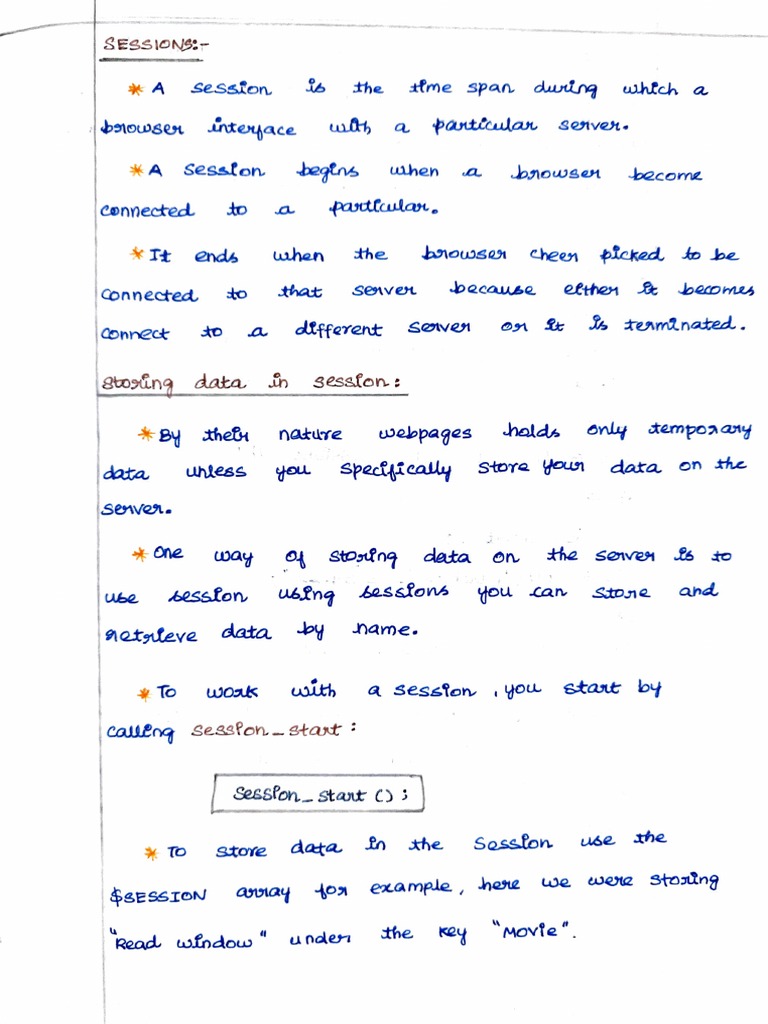 SESSIONS:-
* A session is the time span during which a
browser interface with a particular server.
* A session begins when a browser become
connected to a particular.
* It ends when the browser cheer picked to be
connected to that server because either it becomes
connect to a different server or it is terminated.
storing data in session:
* By their nature webpages holds only temporary
data unless you specifically store your data on the
server.
* One way of storing data on the server is to
use session using sessions you can store and
retrieve data by name.
* To work with a session, you start by
calling session_start:
session_start();
* To store data in the session use the
$SESSION array for example, here we were storing
"Read window" under the key "Movie".